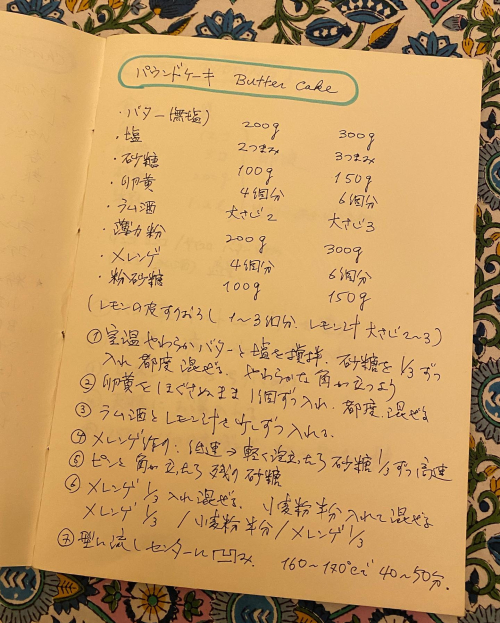 パウンドケーキ Butter Cake
・バター(無塩) 200g 300g
・塩 2つまみ 3つまみ
・砂糖 100g 150g
・卵黄 4個分 6個分
・ラム酒 大さじ2 大さじ3
・薄力粉 200g 300g
・メレンゲ 4個分 6個分
・粉砂糖 100g 150g
(レモンの皮すりおろし 1〜3個分. レモン汁 大さじ2〜3)
① 室温やわらかバターと塩を攪拌. 砂糖を1/3ずつ
入れ都度混ぜる. やわらかな角が立つよう
② 卵黄をほぐさぬまま1個ずつ入れ. 都度. 混ぜる
③ ラム酒とレモン汁を少しずつ入れる.
④ メレンゲ作り. 低速→軽く泡立ったら砂糖1/3ずつ高速
⑤ ピンと角が立ったら残りの砂糖
⑥ メレンゲ1/3入れ混ぜる. 小麦粉半分入れて混ぜる
メレンゲ1/3 /小麦粉半分/メレンゲ1/3
⑦ 型に流しセンターに凹み. 160〜170℃で40〜50分.